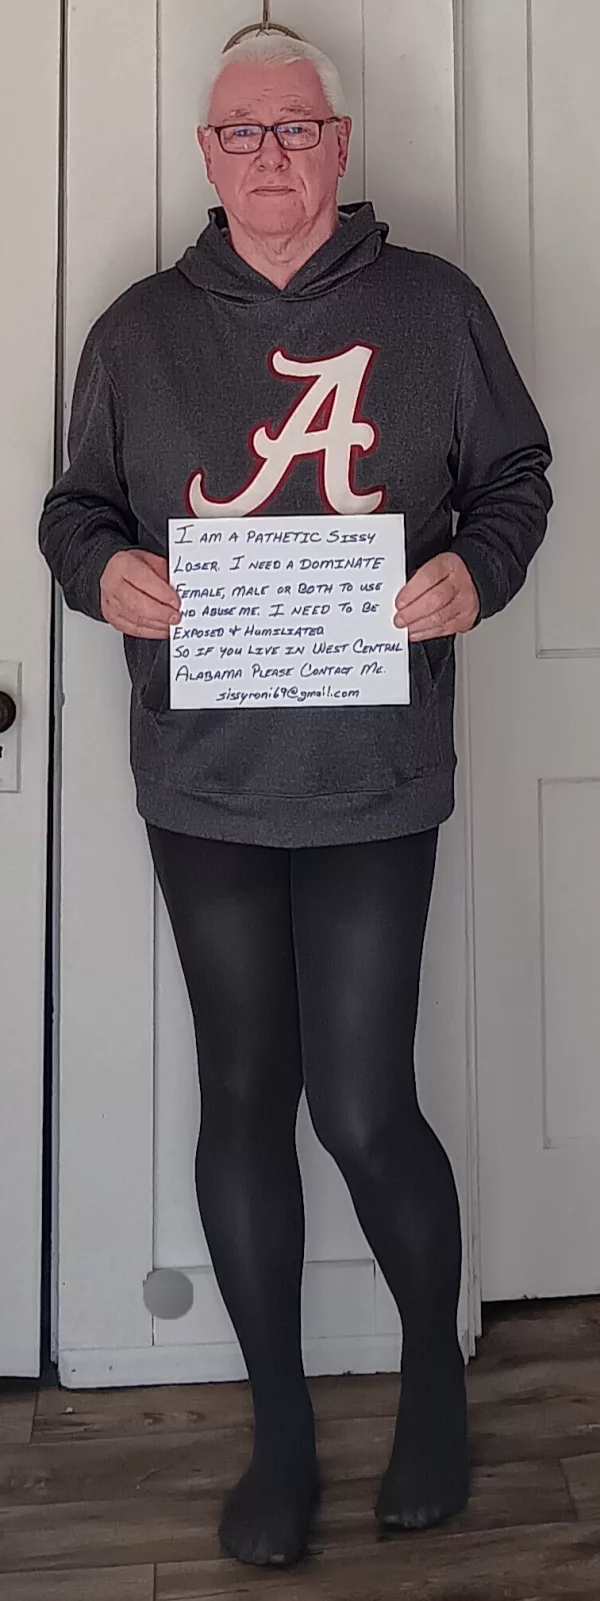 A
I AM A PATHETIC SISSY
LOSER. I NEED A DOMINATE
FEMALE, MALE OR BOTH TO USE
ND ABUSE ME. I NEED TO BE
EXPOSED & HUMILIATED
SO IF YOU LIVE IN WEST CENTRAL
ALABAMA PLEASE CONTACT ME.
sissyroni69@gmail.com